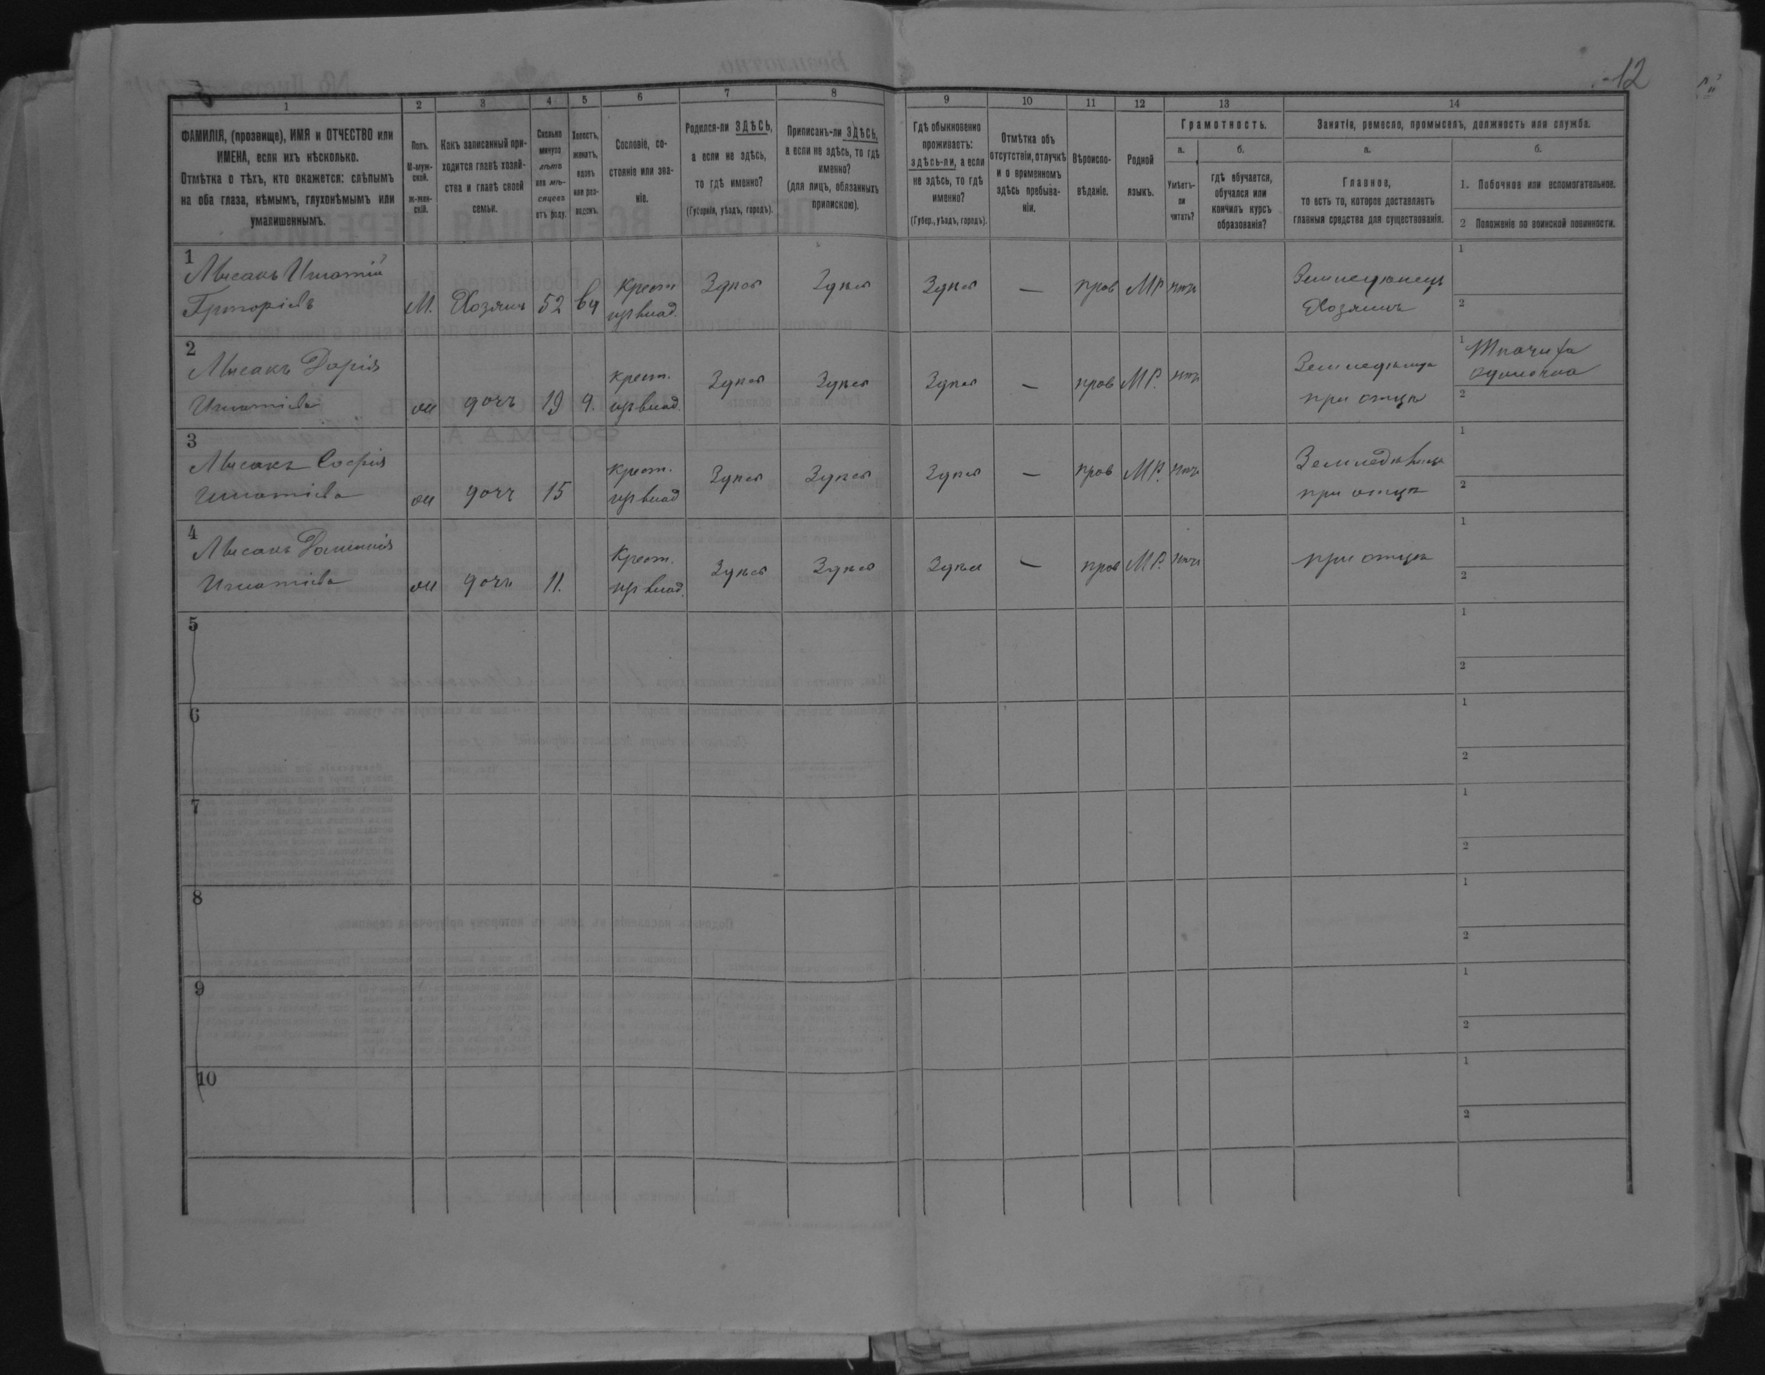 12
1 2 3 4 5 6 7 8 9 10 11 12 13 14
ФАМИЛІЯ, (прозвище), ИМЯ и ОТЧЕСТВО или
ИМЕНА, если ихъ нѣсколько.
Отмѣтка о тѣхъ, кто окажется: слѣпымъ
на оба глаза, нѣмымъ, глухонѣмымъ или
умалишеннымъ.
Полъ.
М-муж-
ской.
ж-жен-
скій.
Какъ записанный при-
ходится главѣ хозяй-
ства и главѣ своей
семьи.
Сколько
минуло
лѣтъ
или мѣ-
сяцевъ
отъ роду.
Холостъ,
женатъ,
вдовъ
или раз-
веденъ.
Сословіе, со-
стояніе или зва-
ніе.
Родился-ли ЗДѢСЬ,
а если не здѣсь,
то гдѣ именно?
(Губернія, уѣздъ, городъ).
Приписанъ-ли ЗДѢСЬ,
а если не здѣсь, то гдѣ
именно?
(для лицъ, обязанныхъ
припискою).
Гдѣ обыкновенно
проживаетъ:
здѣсь-ли, а если
не здѣсь, то гдѣ
именно?
(Губер., уѣздъ, городъ).
Отмѣтка объ
отсутствіи, отлучкѣ
и о временномъ
здѣсь пребыва-
ніи.
Вѣроиспо-
вѣданіе.
Родной
языкъ.
Грамотность.
а.
Умѣетъ-
ли
читать?
б.
гдѣ обучается,
обучался или
кончилъ курсъ
образованія?
Занятіе, ремесло, промыселъ, должность или служба.
а.
Главное,
то есть то, которое доставляетъ
главныя средства для существованія.
б.
1. Побочное или вспомогательное.
2 Положеніе по воинской повинности.
1
Лысакъ Игнатій
Григоріевъ
М. Хозяинъ 52 вд
Крест.
изъ влад.
Здѣсь Здѣсь Здѣсь — прав МР нѣтъ
Земледѣлецъ
Хозяинъ
1
2
2
Лысакъ Дарія
Игнатіева
ж дочь 19 д.
Крест.
изъ влад.
Здѣсь Здѣсь Здѣсь — прав МР. нѣтъ
Земледѣлица
при отцѣ
1 Ткачиха
одиночка
2
3
Лысакъ Софія
Игнатіева
ж дочь 15
Крест.
изъ влад
Здѣсь Здѣсь Здѣсь — прав МР. нѣтъ
Земледѣлица
при отцѣ
1
2
4
Лысакъ
Игнатіева
ж дочь 11.
Крест.
изъ влад.
Здѣсь Здѣсь Здѣсь — прав МР. нѣтъ
при отцѣ
1
2
5
1
2
6
1
2
7
1
2
8
1
2
9
1
2
10
1
2